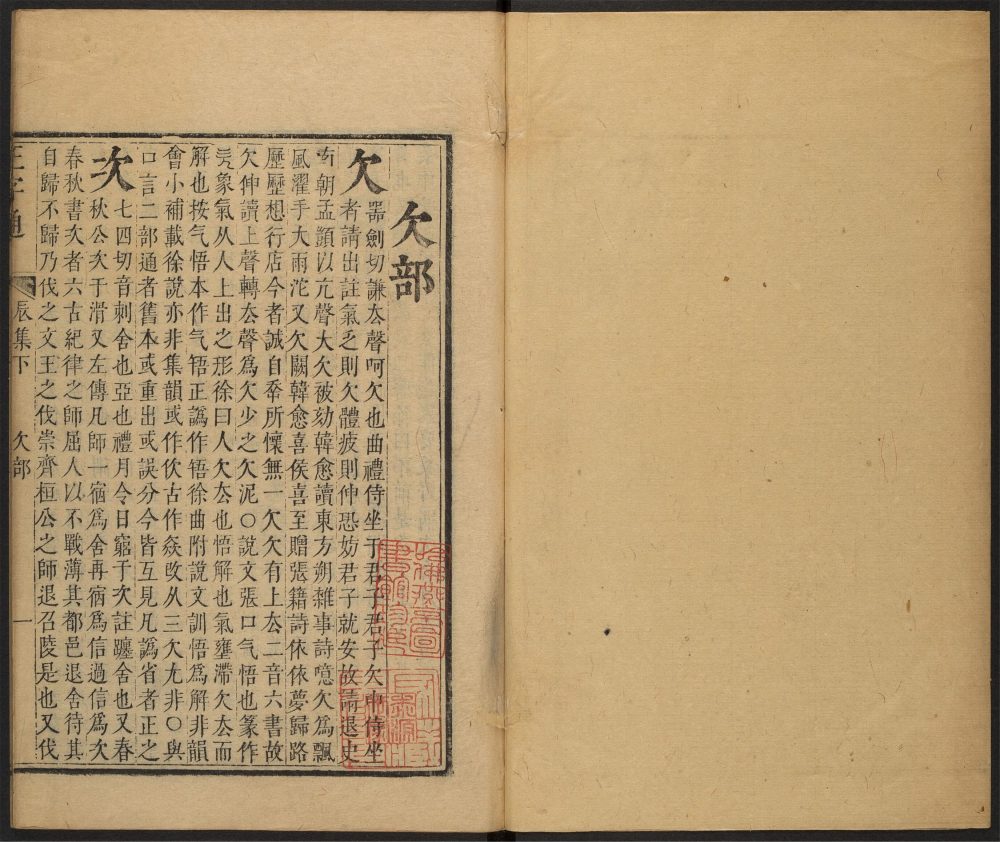 欠部
欠 器劍切謙去聲呵欠也曲禮侍坐于君子君子欠伸侍坐
者請出註氣乏則欠體疲則伸恐妨君子就安故請退史
朝孟顗以亢聲大欠被劾韓愈讀東方朔雜事詩噫欠爲飄
風濯手大雨沱又欠闕韓愈喜侯喜至贈張籍詩依依夢歸路
歷歷想行店今者誠自幸所懷無一欠欠有上去二音六書故
欠伸讀上聲轉去聲爲欠少之欠泥〇說文張口气悟也篆作
象氣从人上出之形徐曰人欠去也悟解也氣壅滯欠去而
解也按气悟本作气㸦正譌作㸦徐曲附說文訓悟爲解非韻
會小補載徐說亦非集韻或作㰦古作㱃改从三欠尤非〇與
口言二部通者舊本或重出或誤分今皆互見凡譌省者正之
次 七四切音刺舍也亞也禮月令日窮于次註躔舍也又春
秋公次于滑又左傳凡師一宿爲舍再宿爲信過信爲次
春秋書次者六古紀律之師屈人以不戰薄其都邑退舍待其
自歸不歸乃伐之文王之伐崇齊桓公之師退召陵是也又伐
正字通 辰集下 欠部 一